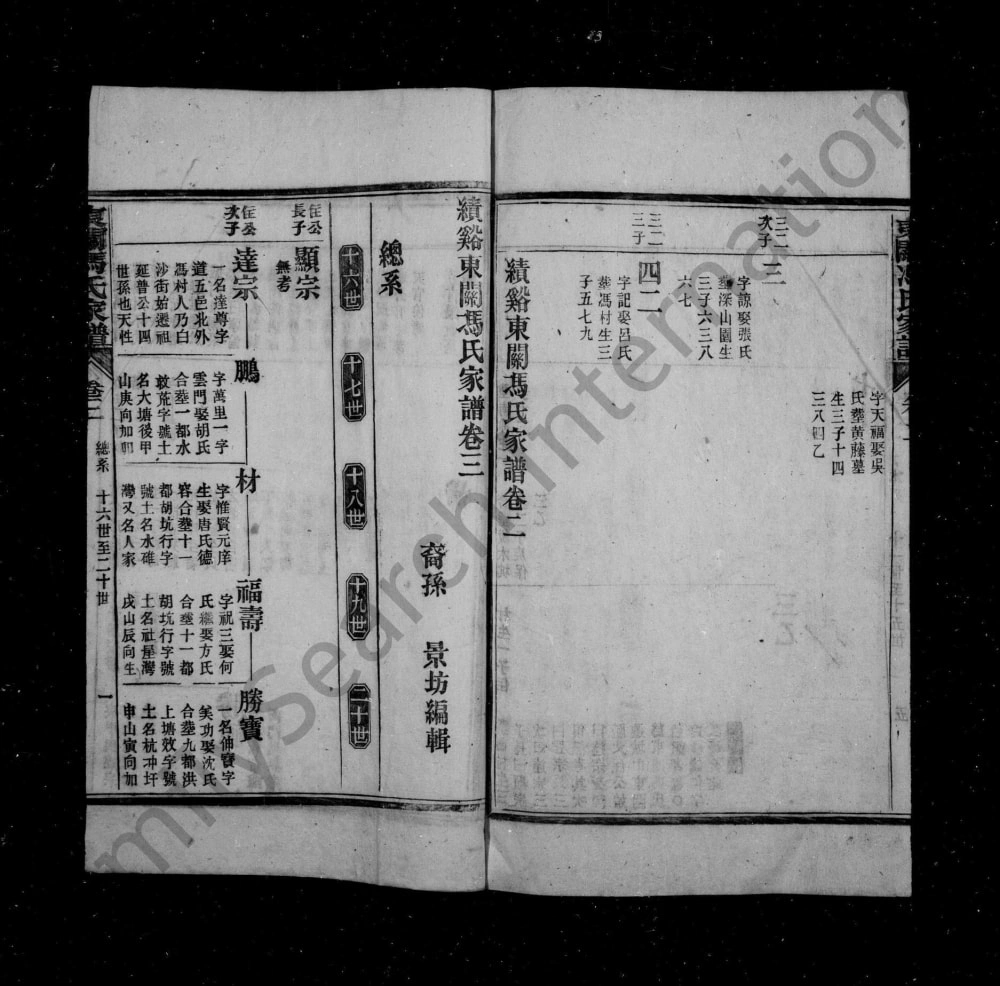 字天福娶吳
氏塟黄藤墓
生三子十四
三八四乙
三二
次子
三三
字諒娶張氏
塟深山園生
三子六三八
六七
三二
三子
四二
字記娶呂氏
塟馮村生三
子五七九
績谿東關馮氏家譜卷二
績谿東關馮氏家譜卷三
裔孫 景坊編輯
總系
十六世 十七世 十八世 十九世 二十世
仕公
長子
顯宗
無考
仕公
次子
達宗
一名達尊字
道五邑北外
馮村人乃白
沙街始遷祖
延普公十四
世孫也天性
鵬
字萬里一字
雲門娶胡氏
合塟一都水
敦荒字號土
名大塘後甲
山庚向加卯
材
字惟賢元庠
生娶唐氏德
容合塟十一
都胡坑行字
號土名水碓
灣又名人家
福壽
字祝三娶何
氏繼娶方氏
合塟十一都
胡坑行字號
土名社屋灣
戌山辰向生
勝寶
一名佛寶字
美功娶沈氏
合塟九都洪
上塘效字號
土名杭冲圩
申山寅向加
東關馮氏家譜
卷二
總系 十六世至二十世
一